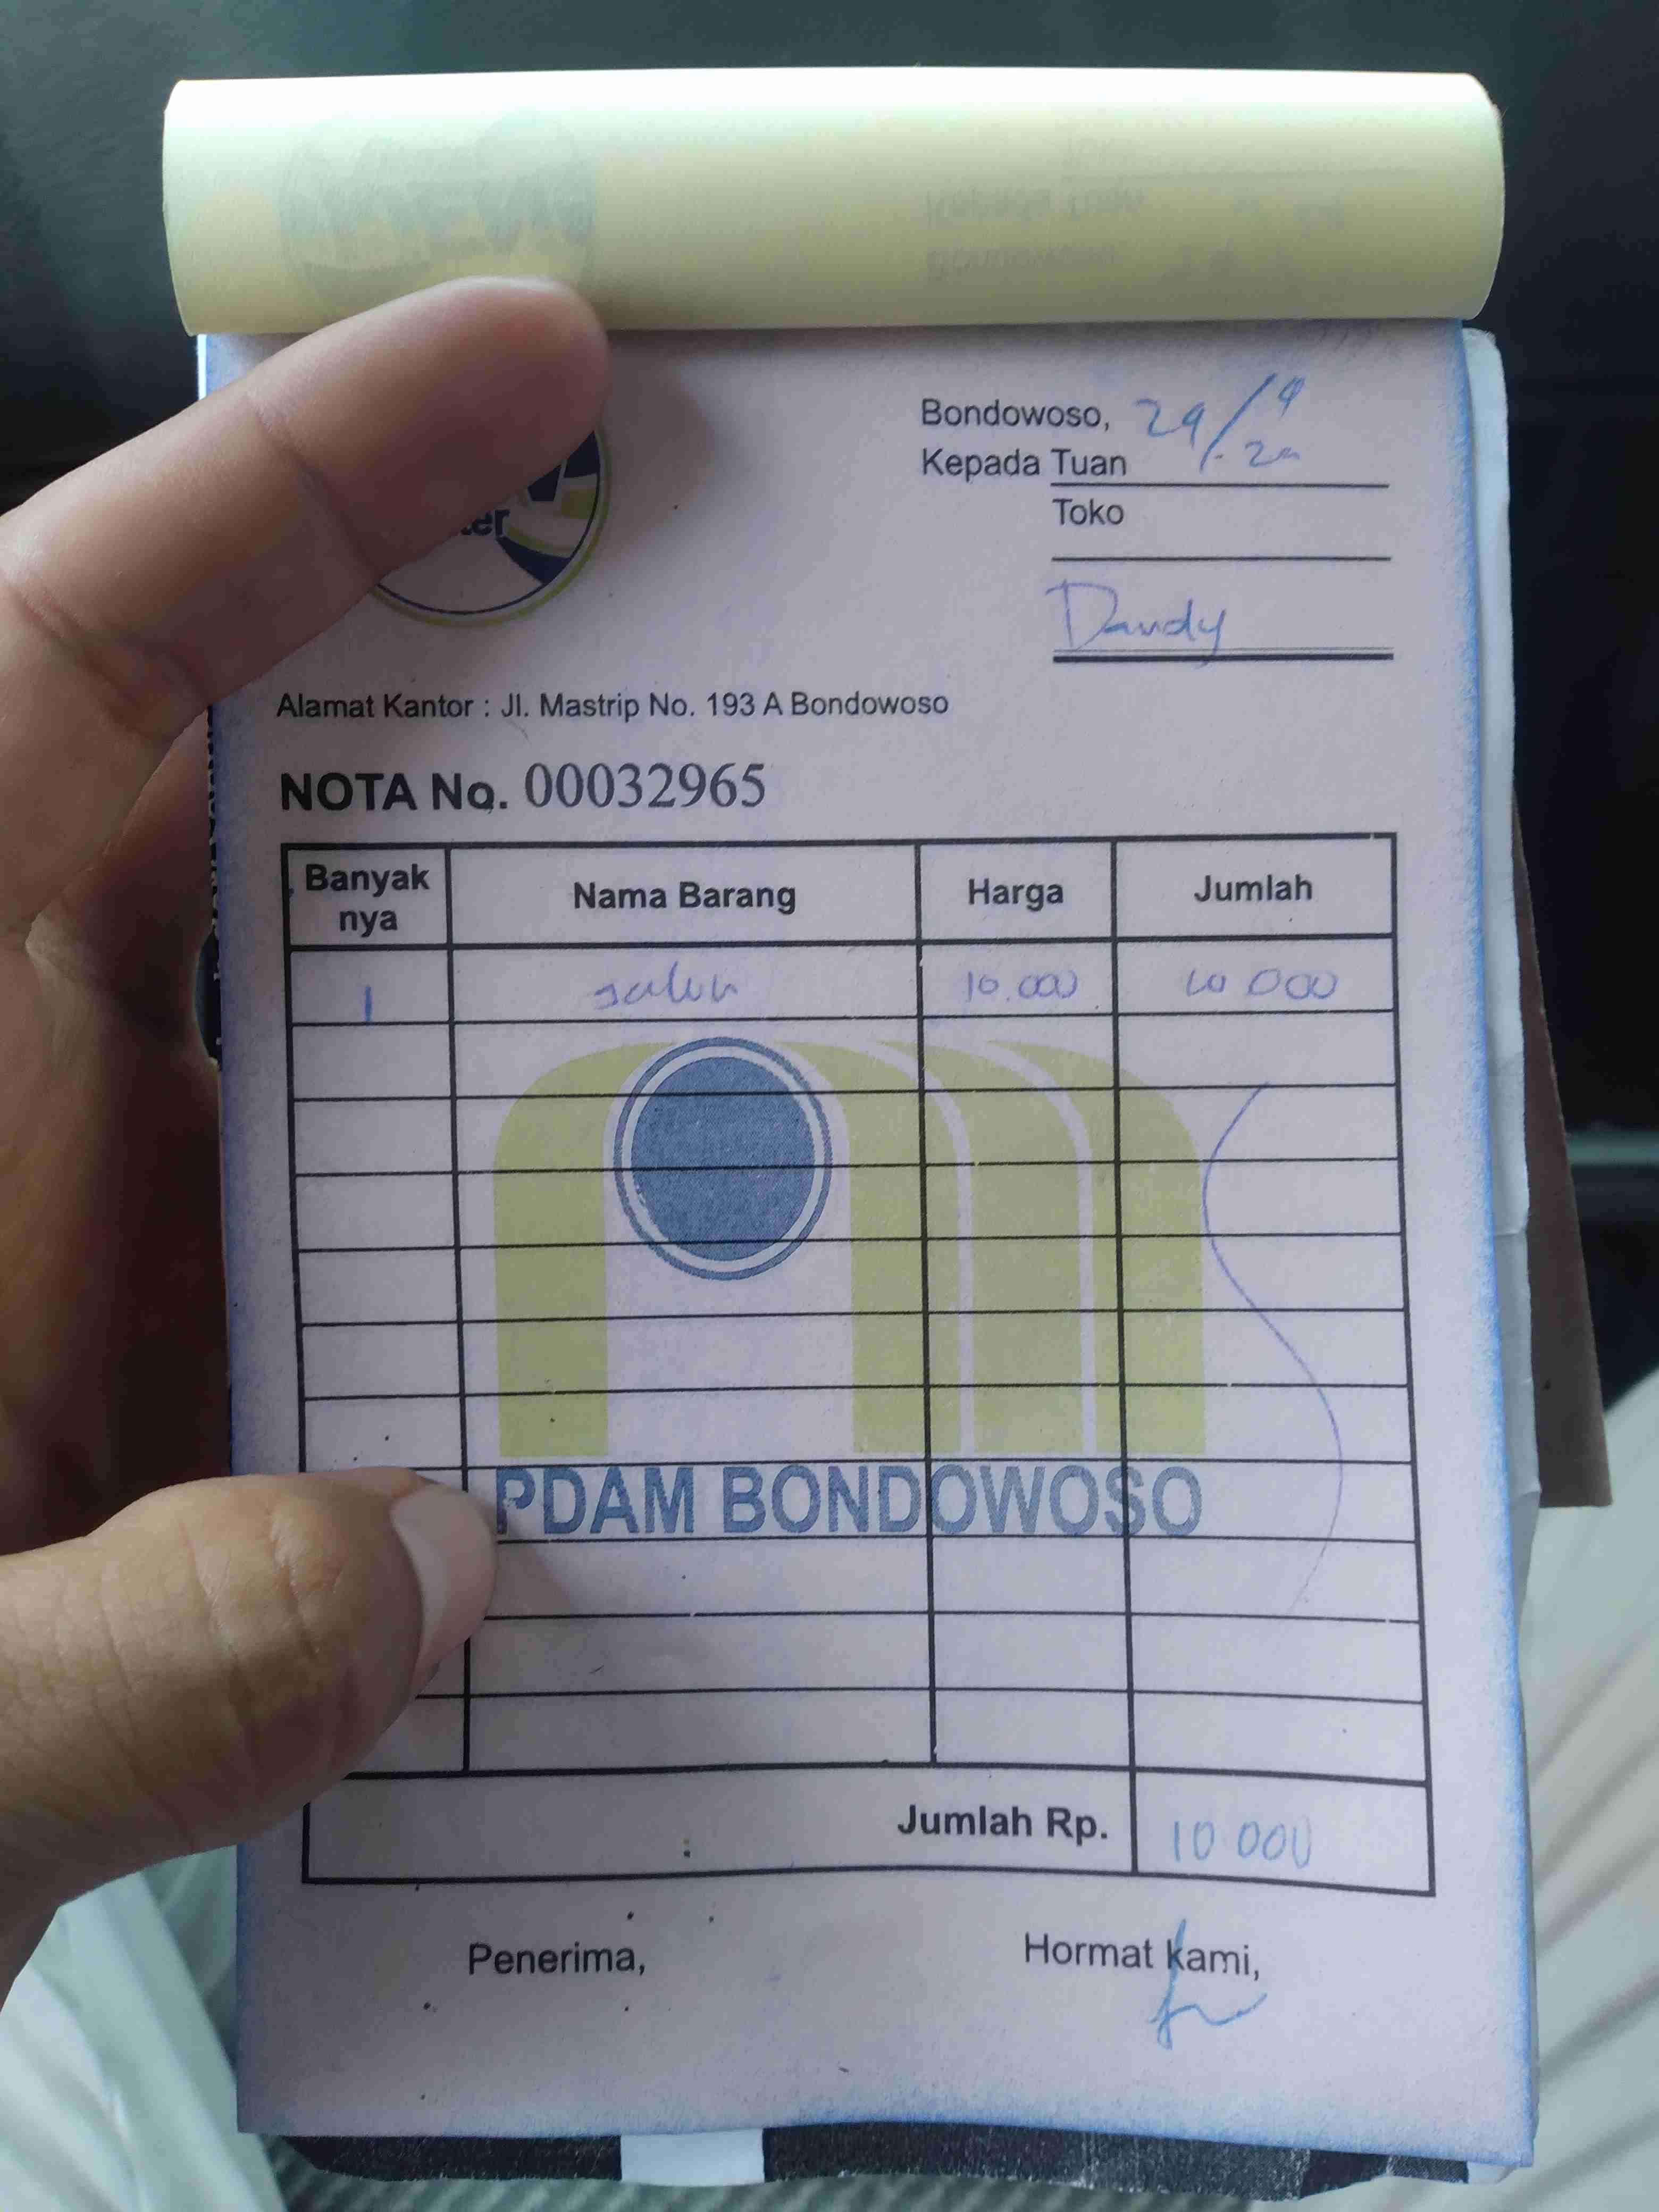 Bondowoso, 29/9
Kepada Tuan
Toko
Dandy
Alamat Kantor : Jl. Mastrip No. 193 A Bondowoso
NOTA No. 00032965
Banyak nya Nama Barang Harga Jumlah
1 galon 10.000 10 000
PDAM BONDOWOSO
Jumlah Rp. 10 000
Penerima, Hormat kami,